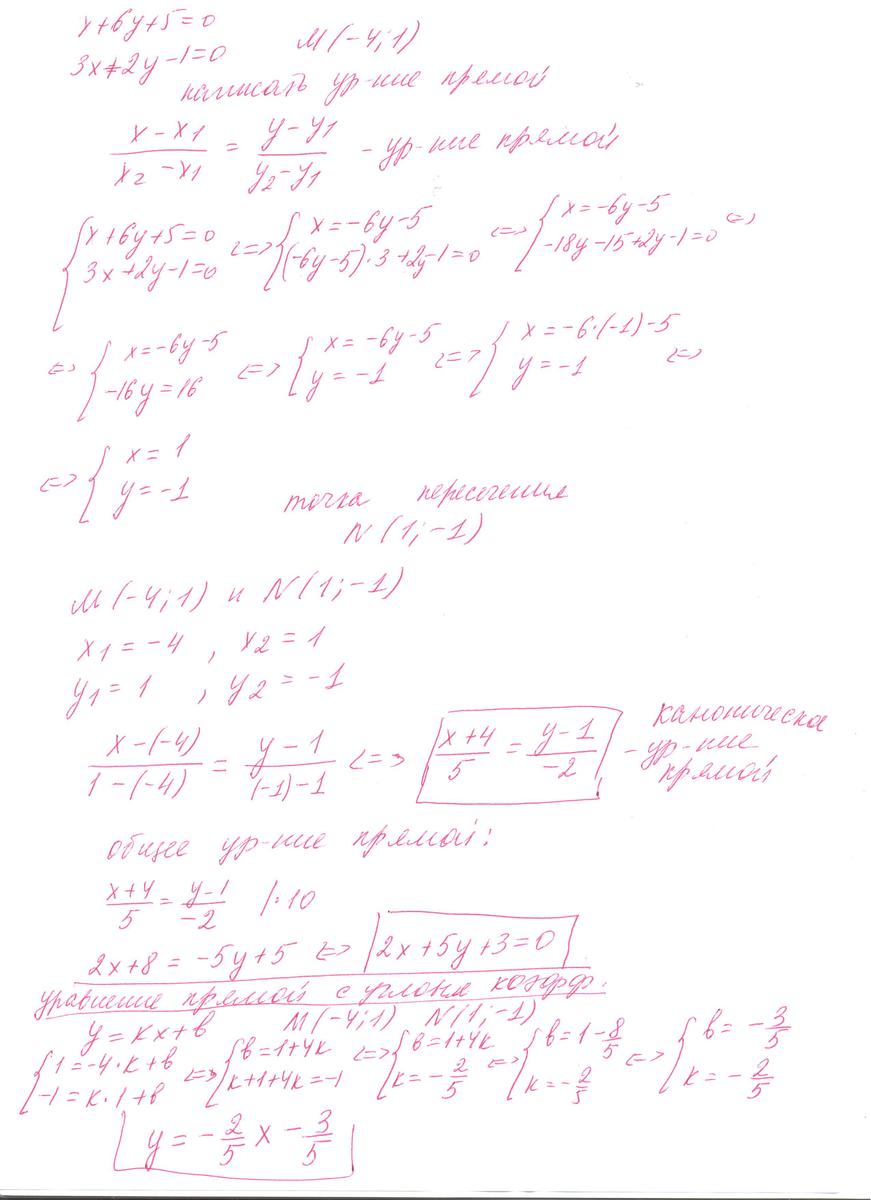 x+6y+5=0
3x+2y-1=0 M(-4;1)
написать ур-ние прямой
(x-x1)/(x2-x1) = (y-y1)/(y2-y1) - ур-ние прямой
{x+6y+5=0; 3x+2y-1=0 <=> {x=-6y-5; (-6y-5)·3+2y-1=0 <=> {x=-6y-5; -18y-15+2y-1=0 <=>
<=> {x=-6y-5; -16y=16 <=> {x=-6y-5; y=-1 <=> {x=-6·(-1)-5; y=-1 <=>
<=> {x=1; y=-1
точка пересечения
N(1;-1)
M(-4;1) и N(1;-1)
x1=-4, x2=1
y1=1, y2=-1
(x-(-4))/(1-(-4)) = (y-1)/((-1)-1) <=> (x+4)/5 = (y-1)/-2 - каноническое ур-ние прямой
общее ур-ние прямой:
(x+4)/5 = (y-1)/-2 /·10
2x+8=-5y+5 <=> 2x+5y+3=0
уравнение прямой с угловым коэфф.
y=kx+b M(-4;1) N(1;-1)
{1=-4·k+b; -1=k·1+b <=> {b=1+4k; k+1+4k=-1 <=> {b=1+4k; k=-2/5 <=> {b=1-8/5; k=-2/5 <=> {b=-3/5; k=-2/5
y=-2/5x-3/5